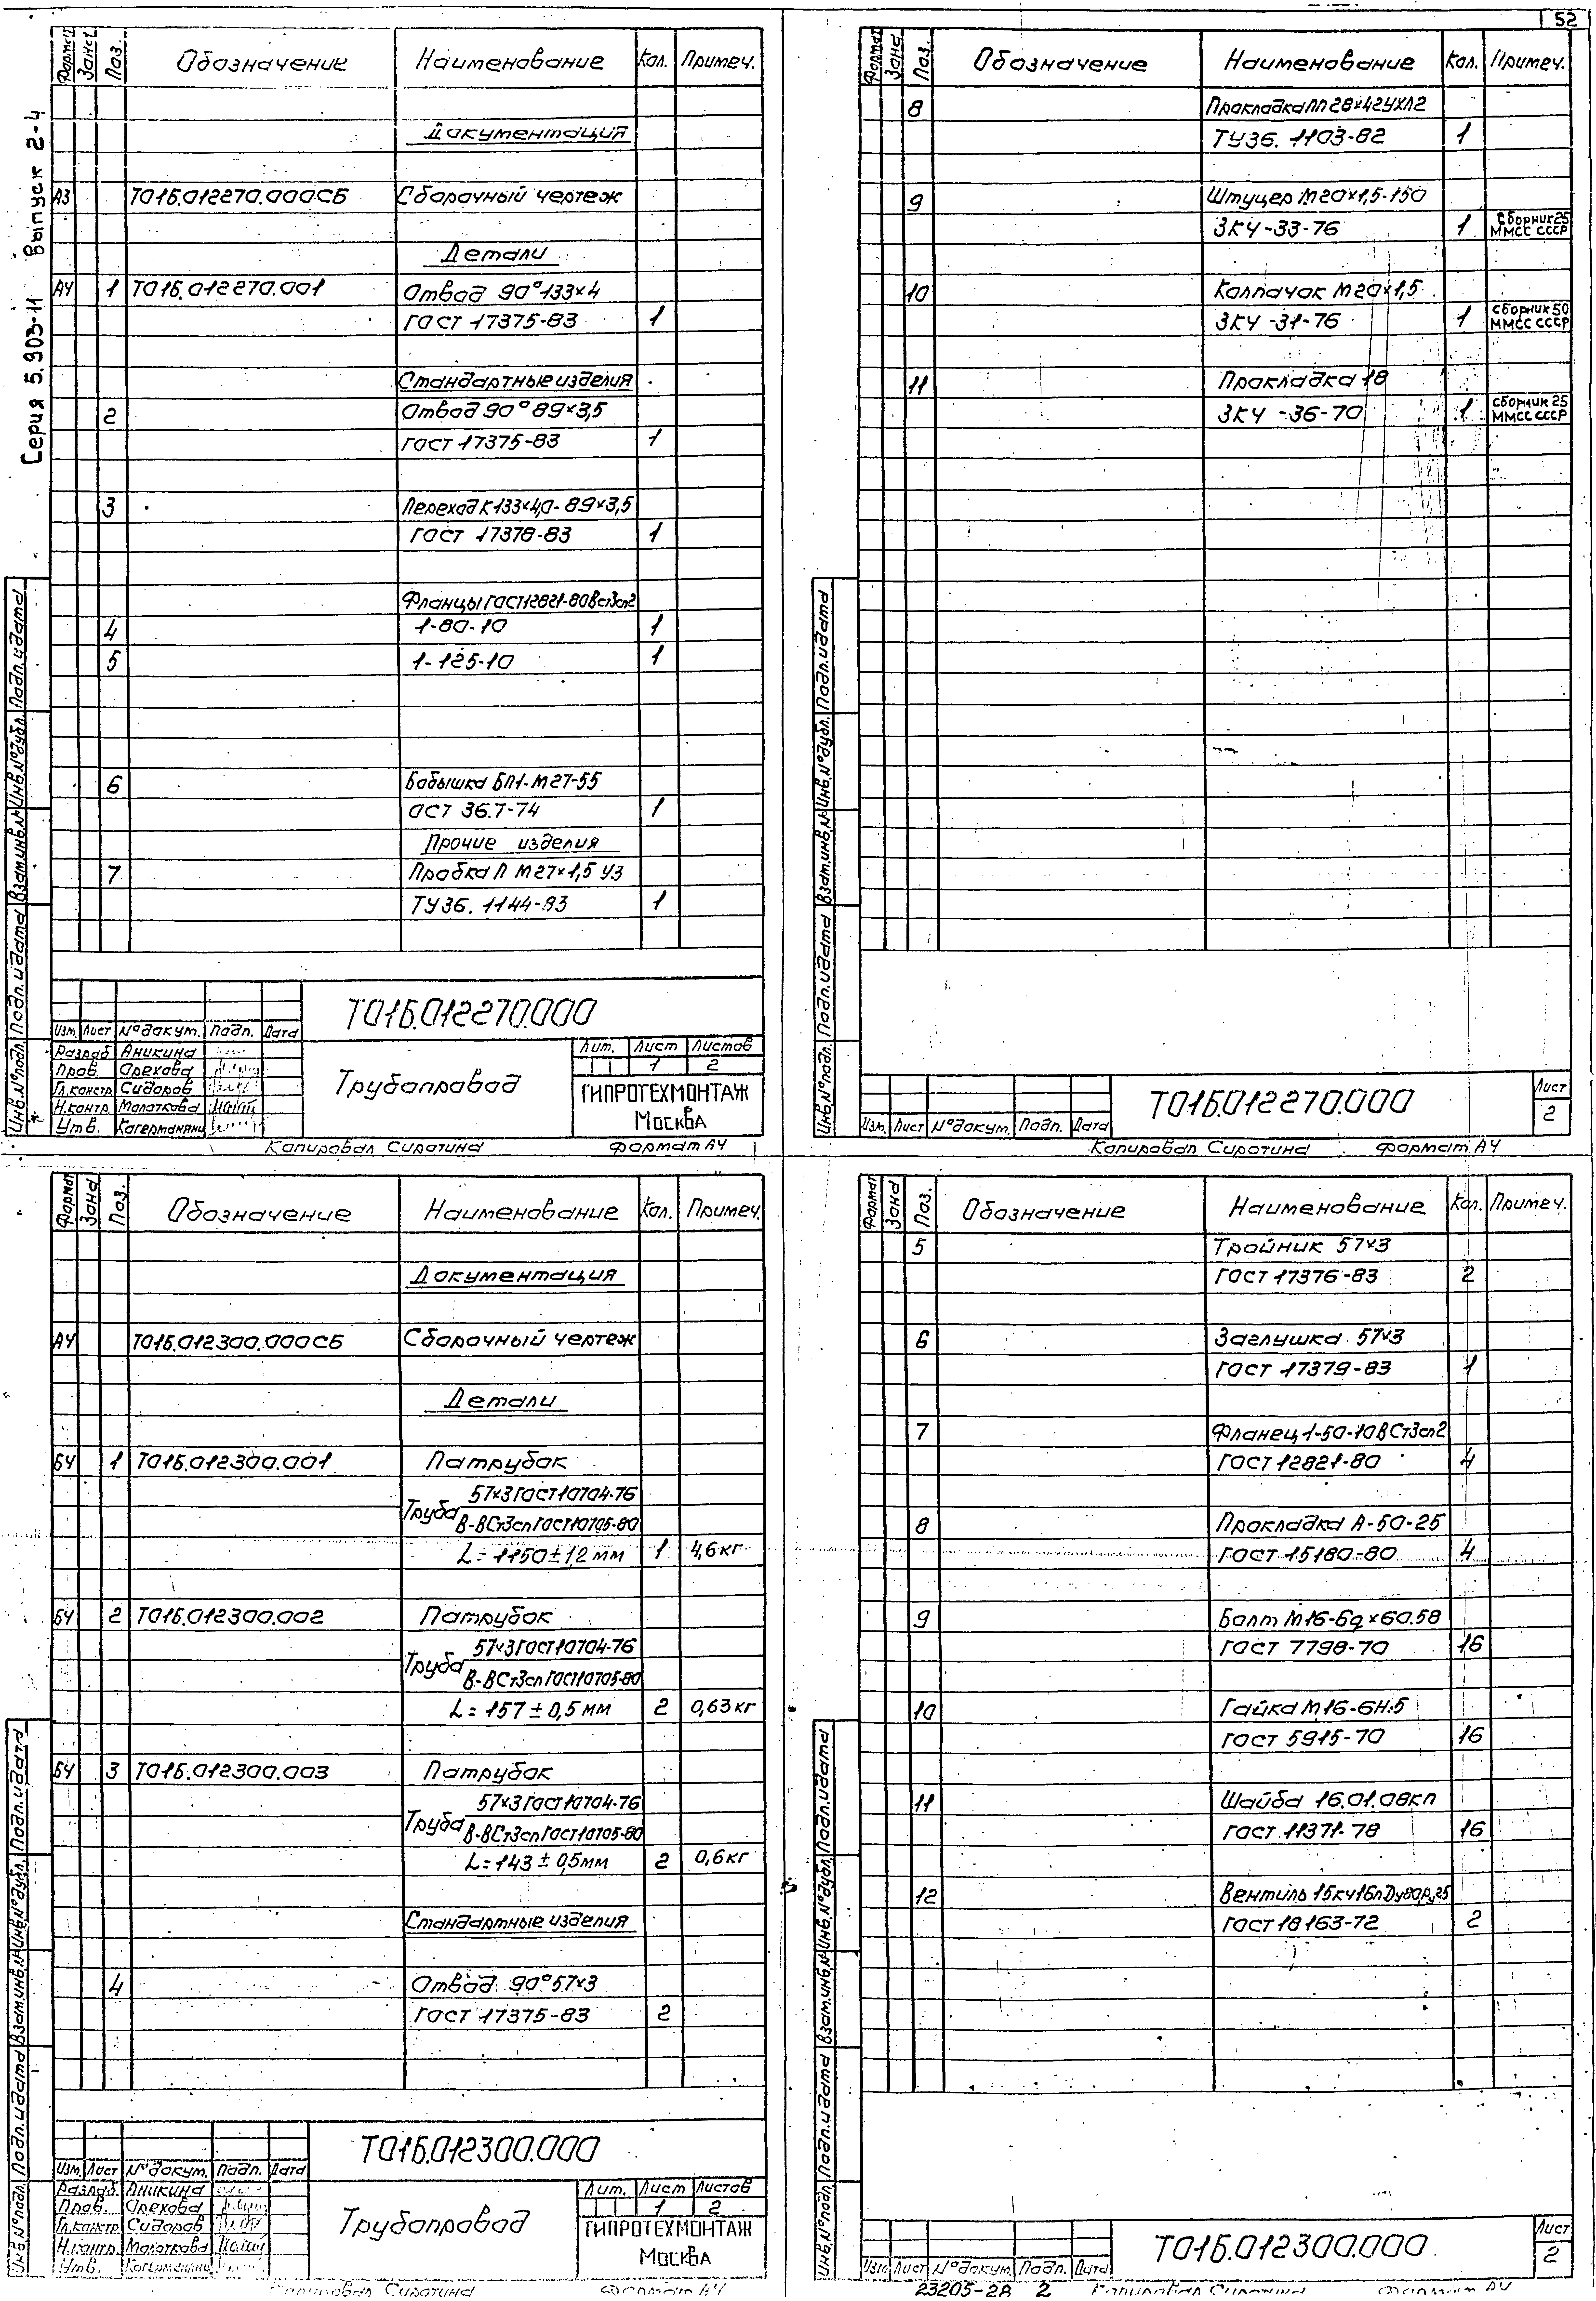 52
Серия 5.903-11 Выпуск 2-4
Формат Зона Поз. Обозначение Наименование Кол. Примеч.
Документация
А3 Т01Б.012270.000СБ Сборочный чертеж
Детали
А4 1 Т01Б.012270.001 Отвод 90°133×4
ГОСТ 17375-83 1
Стандартные изделия
2 Отвод 90°89×3,5
ГОСТ 17375-83 1
3 Переход К133×4,0-89×3,5
ГОСТ 17378-83 1
Фланцы ГОСТ12821-80 ВСт3сп2
4 1-80-10 1
5 1-125-10 1
6 Бобышка БП1-М27-55
ОСТ 36.7-74 1
Прочие изделия
7 Пробка П М27×1,5 У3
ТУ36.1144-83 1
Т01Б.012270.000
Изм. Лист №докум. Подп. Дата
Разраб. Аникина
Пров. Орехова
Гл.констр. Сидоров
Н.контр. Молоткова
Утв.
Трубопровод
Лит. Лист Листов
1 2
ГИПРОТЕХМОНТАЖ
Москва
Инв.№подл. Подп.и дата Взам.инв.№ Инв.№дубл. Подп.и дата
Копировал Сиротина Формат А4
Формат Зона Поз. Обозначение Наименование Кол. Примеч.
8 Прокладка ПП28×42УХЛ2
ТУ36.1103-82 1
9 Штуцер М20×1,5-150
ЗК4-33-76 1 Сборник 25 ММСС СССР
10 Колпачок М20×1,5
ЗК4-31-76 1 Сборник 50 ММСС СССР
11 Прокладка 18
ЗК4-36-70 1 Сборник 25 ММСС СССР
Инв.№подл. Подп.и дата Взам.инв.№ Инв.№дубл. Подп.и дата
Изм. Лист №докум. Подп. Дата
Т01Б.012270.000
Лист
2
Копировал Сиротина Формат А4
Формат Зона Поз. Обозначение Наименование Кол. Примеч.
Документация
А4 Т01Б.012300.000СБ Сборочный чертеж
Детали
БЧ 1 Т01Б.012300.001 Патрубок
Труба 57×3 ГОСТ10704-76
В-ВСт3сп ГОСТ10705-80
L=1150±1,2 мм 1 4,6кг
БЧ 2 Т01Б.012300.002 Патрубок
Труба 57×3 ГОСТ10704-76
В-ВСт3сп ГОСТ10705-80
L=157±0,5 мм 2 0,63кг
БЧ 3 Т01Б.012300.003 Патрубок
Труба 57×3 ГОСТ10704-76
В-ВСт3сп ГОСТ10705-80
L=143±0,5мм 2 0,6кг
Стандартные изделия
4 Отвод 90°57×3
ГОСТ 17375-83 2
Т01Б.012300.000
Изм. Лист №докум. Подп. Дата
Разраб. Аникина
Пров. Орехова
Гл.констр. Сидоров
Н.контр. Молоткова
Утв.
Трубопровод
Лит. Лист Листов
1 2
ГИПРОТЕХМОНТАЖ
Москва
Инв.№подл. Подп.и дата Взам.инв.№ Инв.№дубл. Подп.и дата
Копировал Сиротина Формат А4
Формат Зона Поз. Обозначение Наименование Кол. Примеч.
5 Тройник 57×3
ГОСТ 17376-83 2
6 Заглушка 57×3
ГОСТ 17379-83 1
7 Фланец 1-50-10 ВСт3сп2
ГОСТ 12821-80 4
8 Прокладка А-50-25
ГОСТ 15180-80 4
9 Болт М16-6g×60.58
ГОСТ 7798-70 16
10 Гайка М16-6Н.5
ГОСТ 5915-70 16
11 Шайба 16.01.08кп
ГОСТ 11371-78 16
12 Вентиль 15кч16п Ду80, Ру25
ГОСТ 18163-72 2
Инв.№подл. Подп.и дата Взам.инв.№ Инв.№дубл. Подп.и дата
Изм. Лист №докум. Подп. Дата
Т01Б.012300.000
Лист
2
23205-28 2 Копировал Сиротина Формат А4